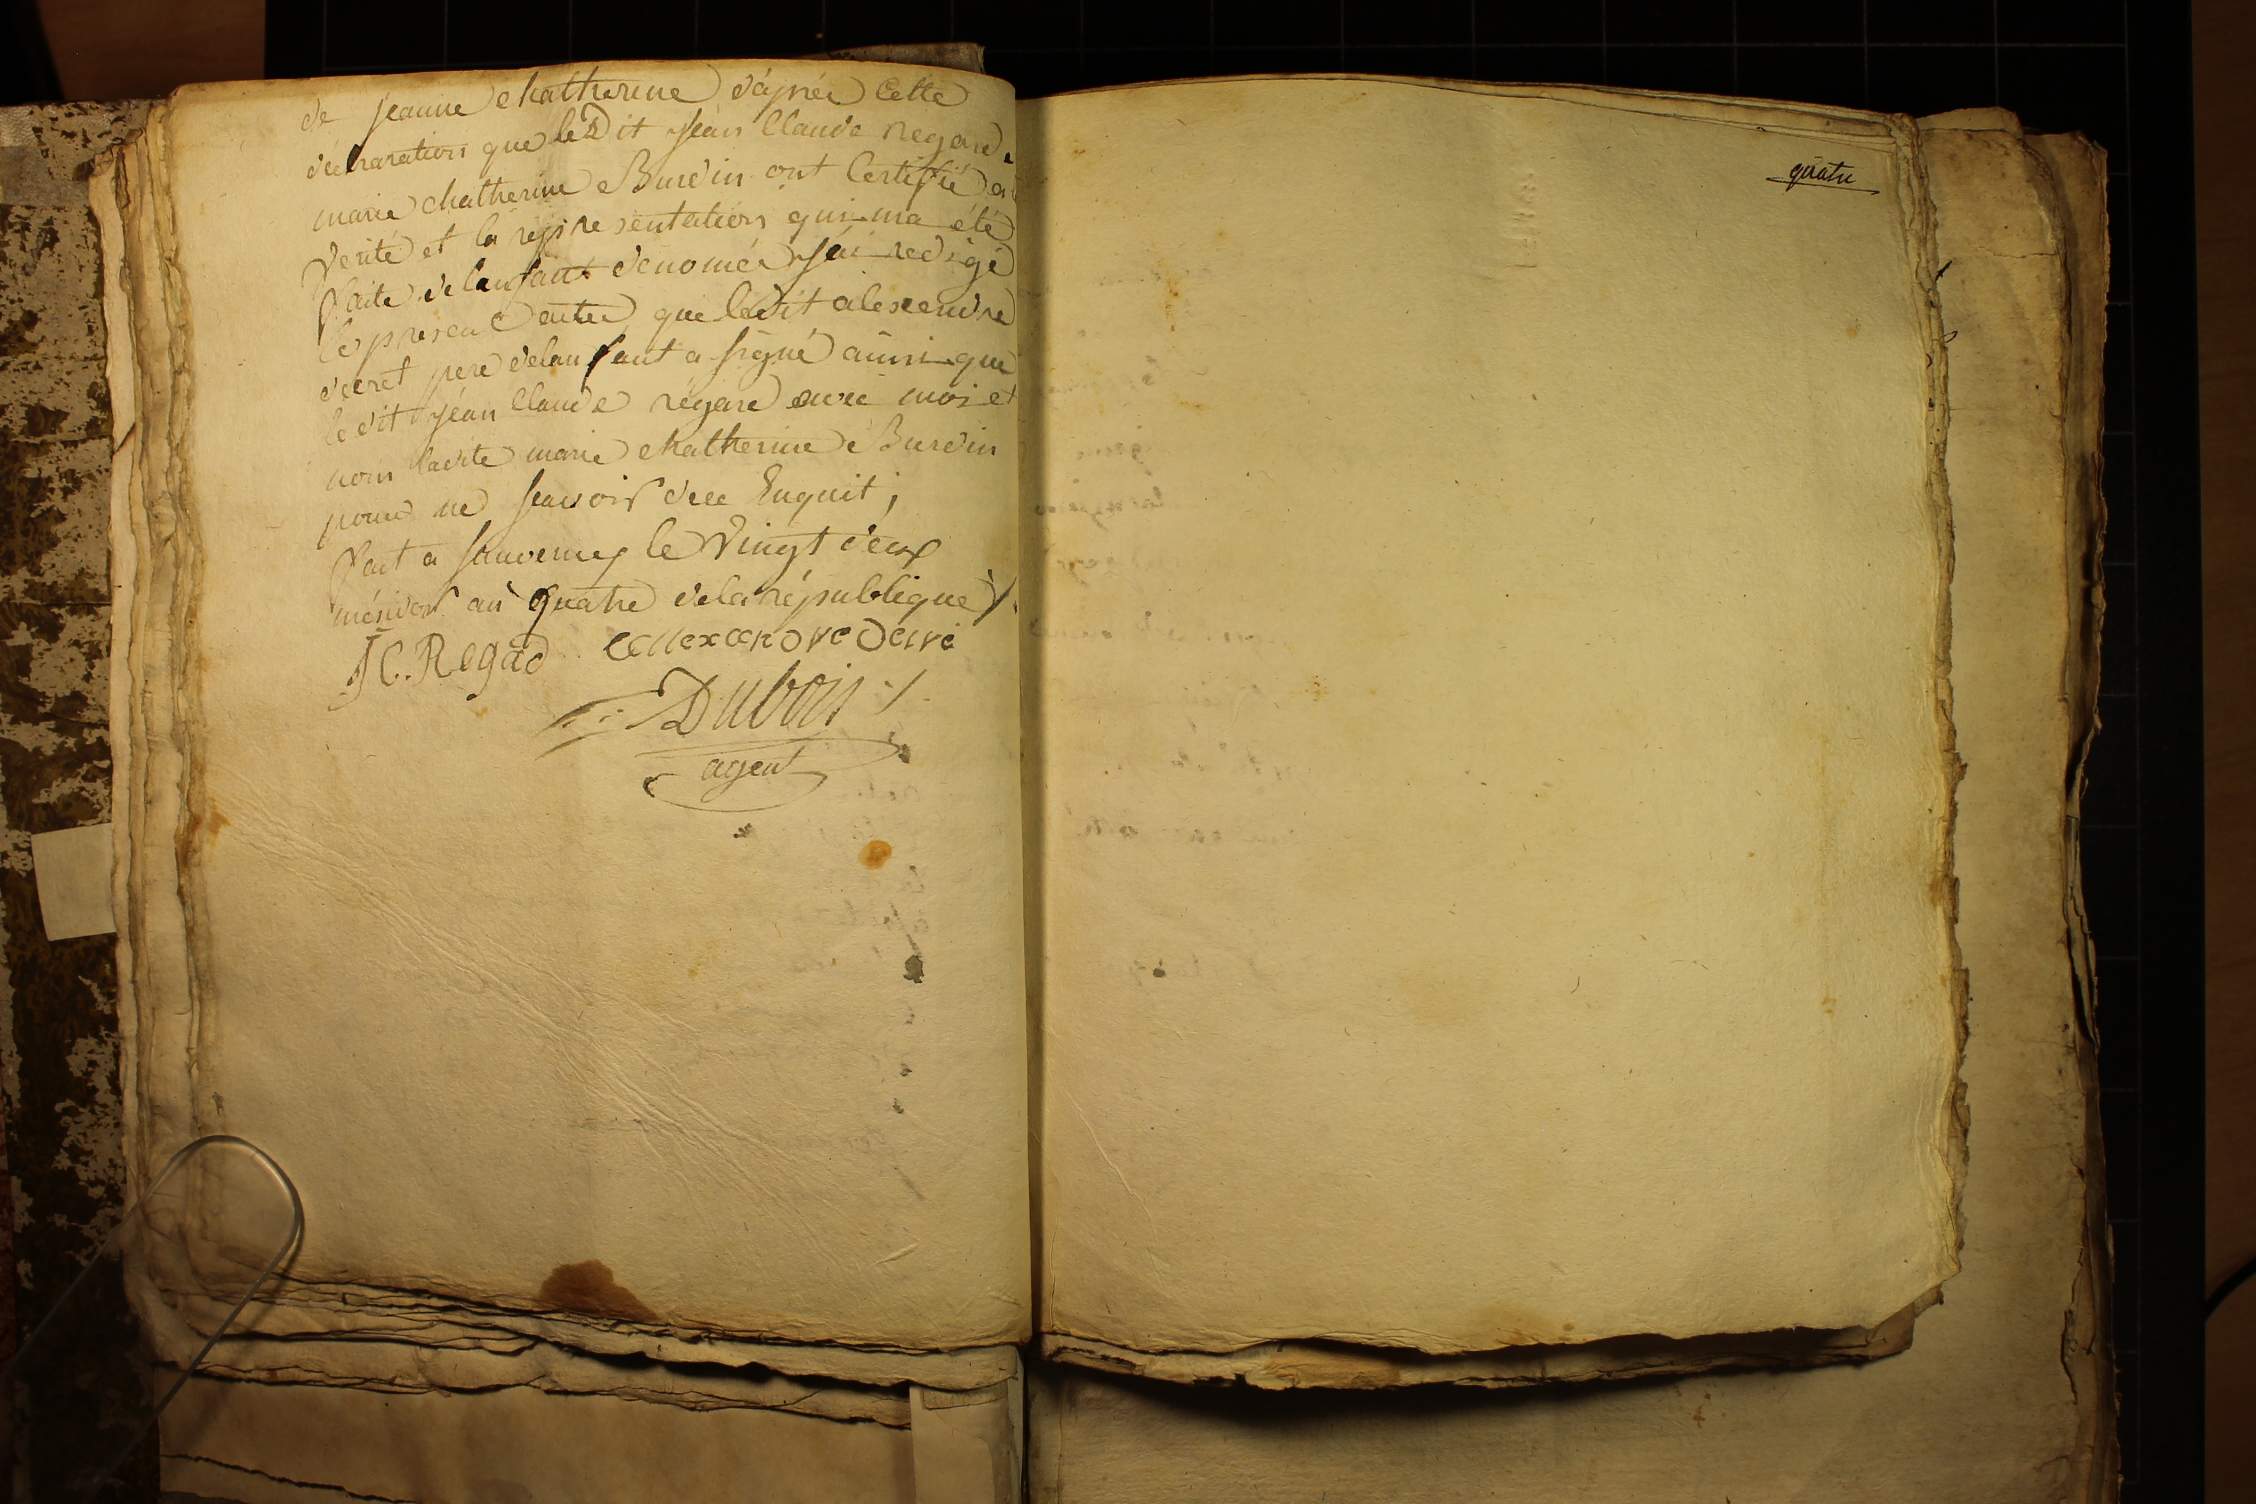 de jeanne chatherine d'aprés Cette
déclaration que le Dit jean Claude regard
marie chatherine Burdin ont Certifié
verité et la représentation qui ma été
faite delanfant denomés jai redigé
le presen acter que ledit alexendre
decret pere delanfant a signé ainsi que
le dit jean Claude régard avec moi et
non ladite marie chatherine Burdin
pour ne scavoir dece Enquit ;
fait a sauverney le vingt deux
mésidor an quatre dela république
JC. Regad allexandre Decré
Dubois
agent
quatre